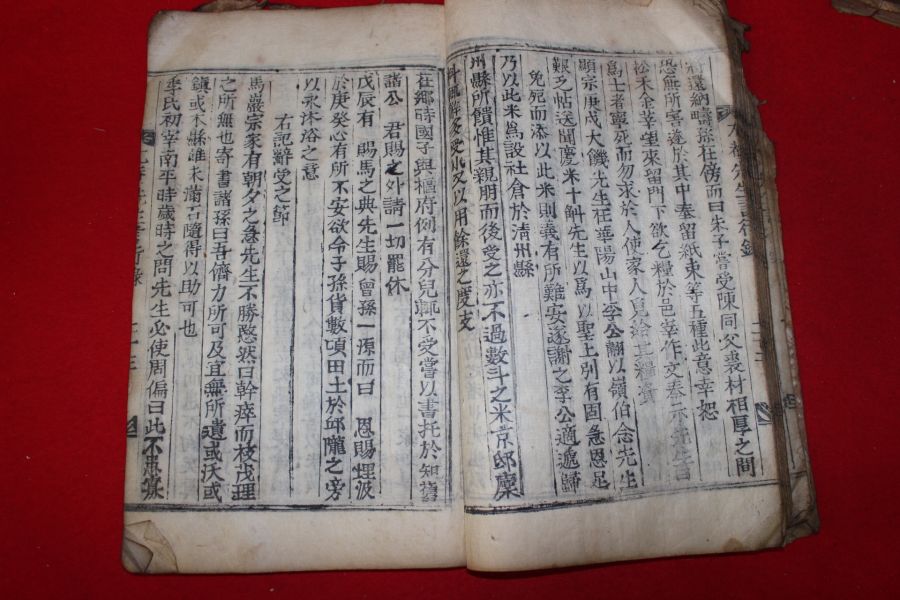 先生言行錄
還納疇孫在傍而曰朱子嘗受陳同父裘材相厚之間
恐無所害遂於其中奉留紙束等五種此意幸恕
松禾金宰望來留門下欲乞糧於邑宰作文奉示先生言
爲士者寧死而勿求於人使家人兒給
顯宗庚戌大饑先生在華陽山中李公翿以嶺伯念先生
艱乏帖送聞慶米十斛先生以爲以聖上別有周急恩足
免死而添以此米則義有所難安遂謝之李公適遞歸
乃以此米爲設社倉於淸州縣
州縣所饋惟其親朋而後受之亦不過數斗之米京邸廩
又以用餘還之度支
在鄕時國子與樞府例有分兒輒不受嘗以書托於知舊
諸公 君賜之外請一切罷休
戊辰有 賜馬之典先生賜曾孫一源而曰 恩賜埋沒
於庚癸心有所不安欲令子孫貨數項田土於邱隴之旁
以永沐浴之意
右記辭受之節
馬巖宗家有朝夕之急先生不勝愍然曰幹瘁而枝茂理
之所無也寄書諸孫曰吾儕力所可及宜無所遺或沃或
鎭或木縣雖未滿石隨得以助可也
季氏初宰南平時歲時之問先生必使周徧曰此不患寡